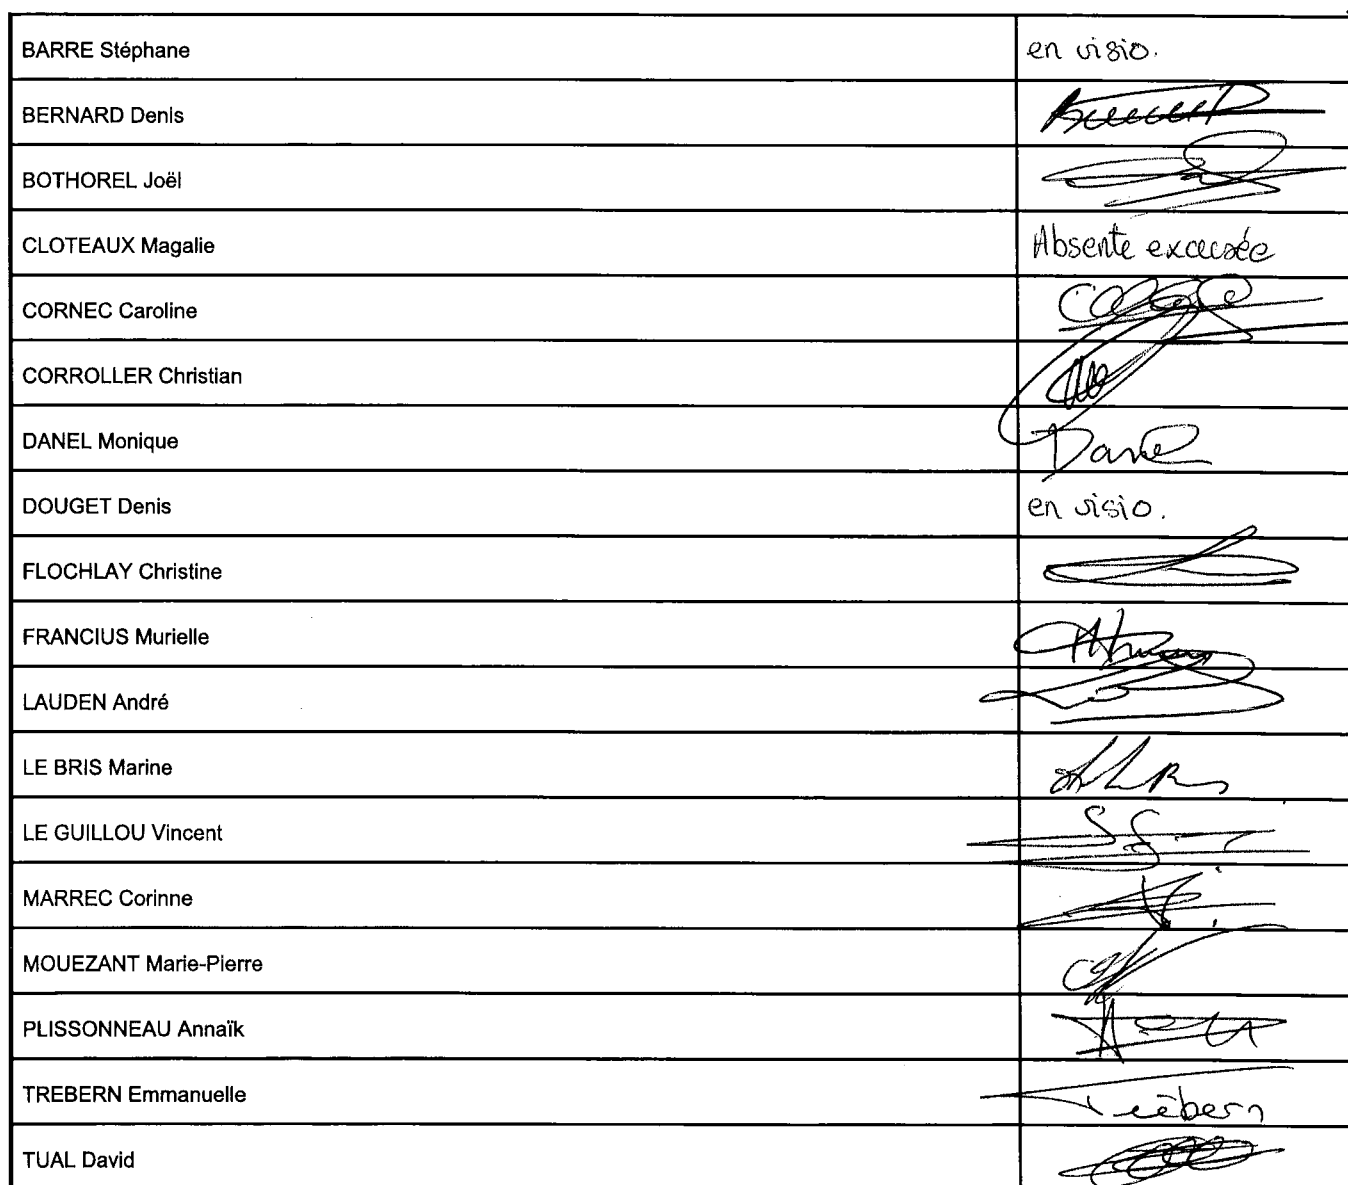 BARRE Stéphane en visio.
BERNARD Denis
BOTHOREL Joël
CLOTEAUX Magalie Absente excusée
CORNEC Caroline
CORROLLER Christian
DANEL Monique Danel
DOUGET Denis en visio.
FLOCHLAY Christine
FRANCIUS Murielle
LAUDEN André
LE BRIS Marine
LE GUILLOU Vincent
MARREC Corinne
MOUEZANT Marie-Pierre
PLISSONNEAU Annaïk
TREBERN Emmanuelle Trébern
TUAL David